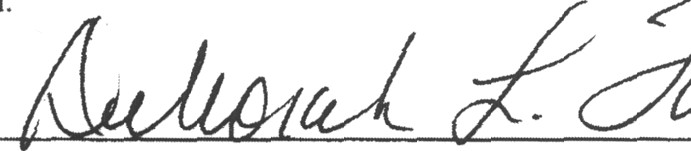 Deborah L.